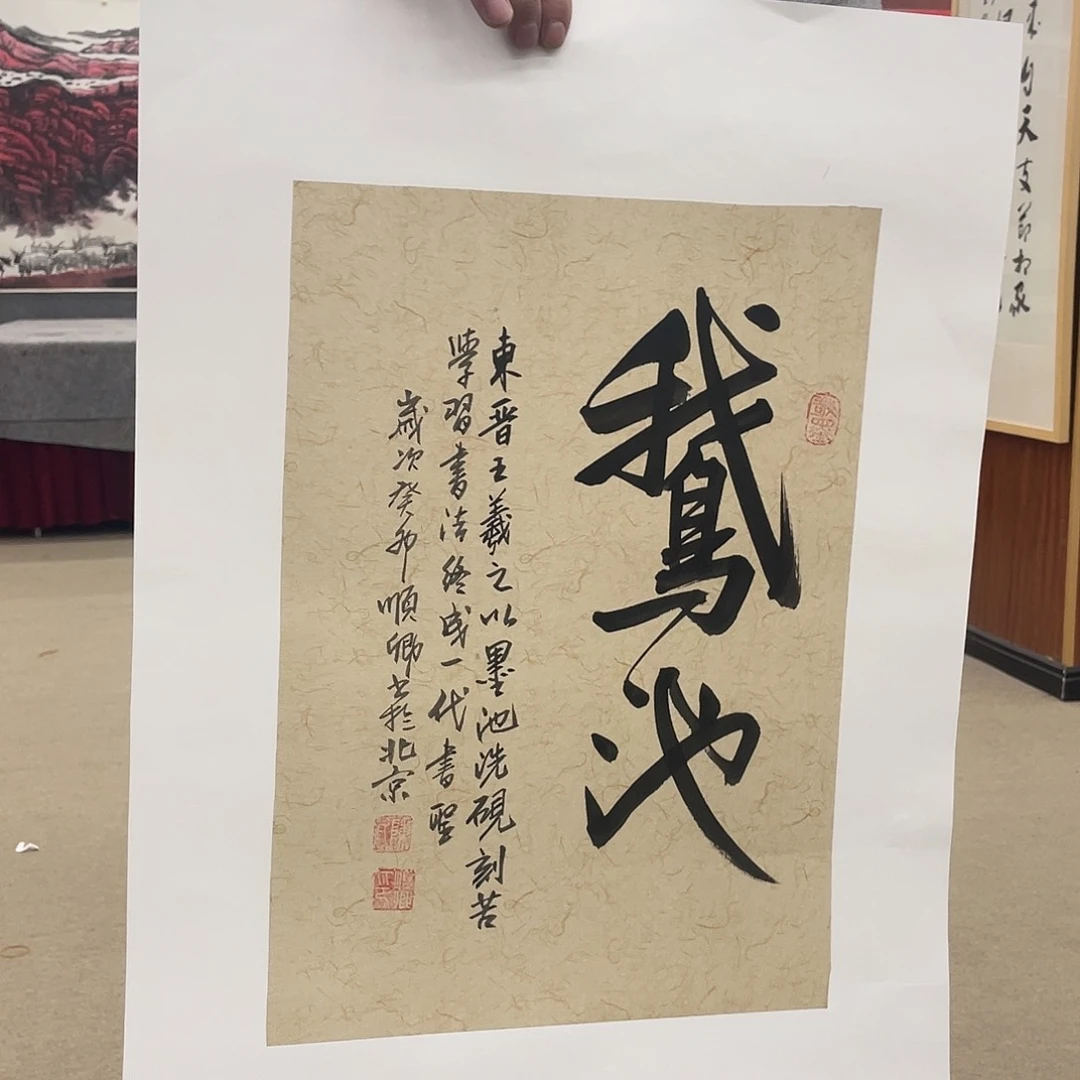 鵞池
東晉王羲之以墨池洗硯刻苦
學習書法終成一代書聖
歲次癸卯順卿書於北京